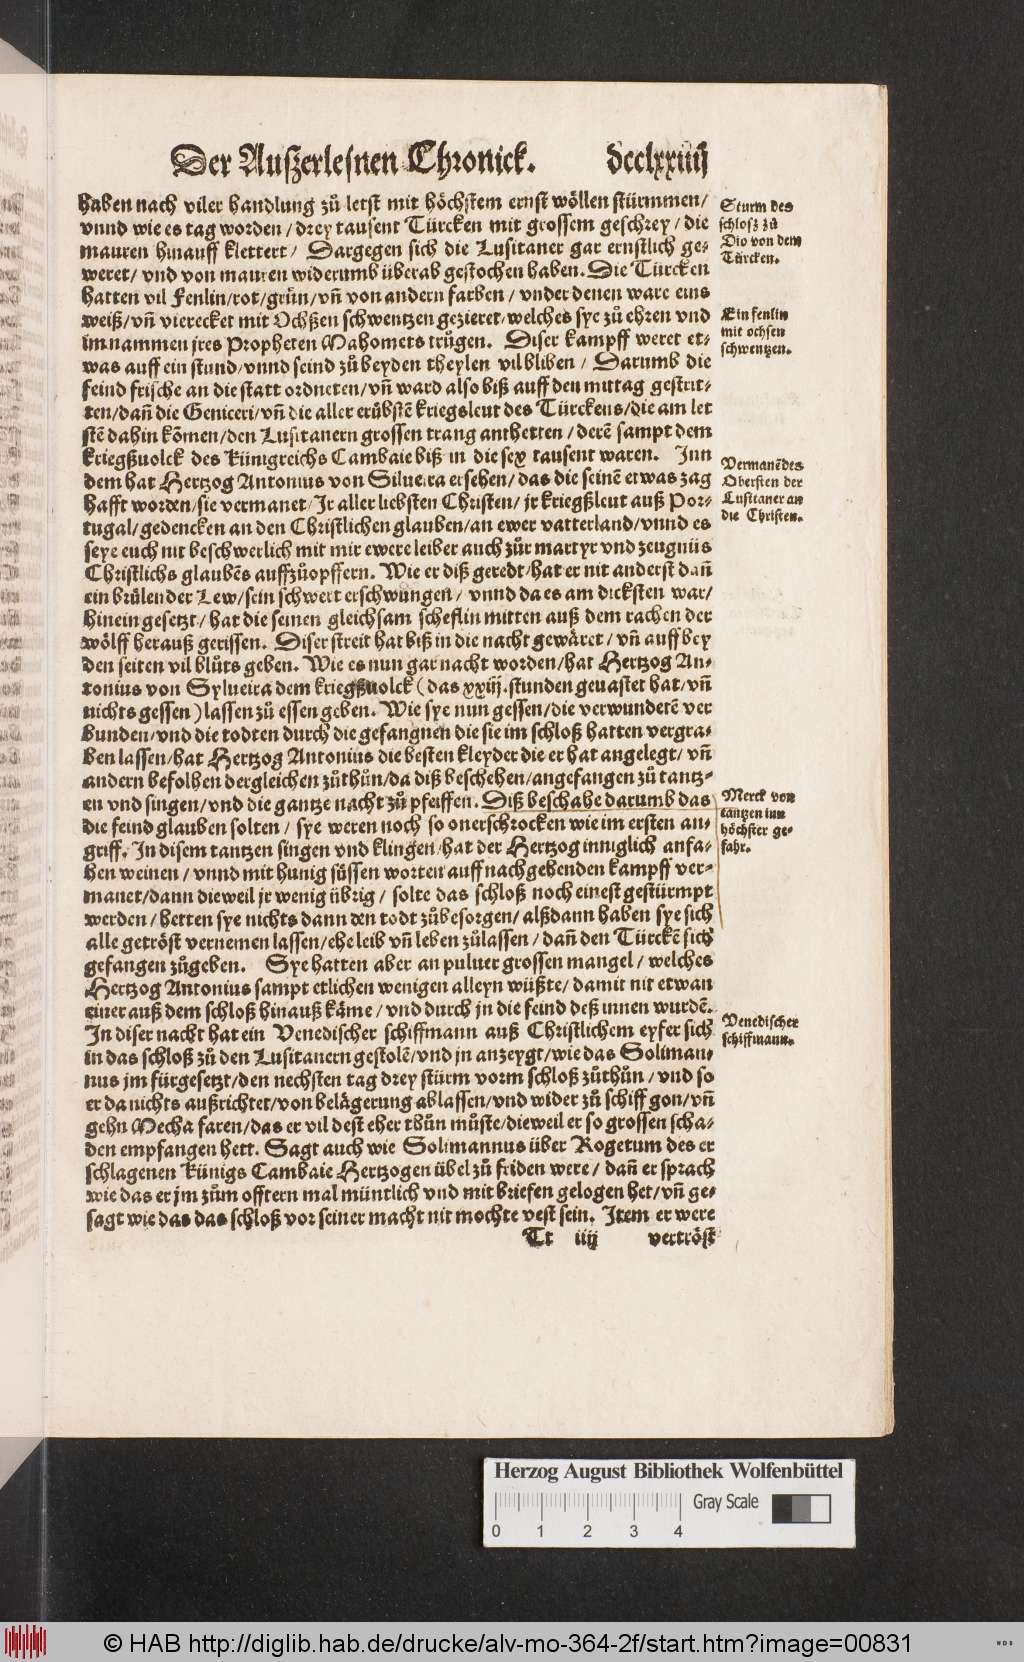 Der Auszerlesnen Chronick. dcclxxiiij
haben nach viler handlung zů letst mit höchstem ernst wöllen stürmmen/
vnnd wie es tag worden / drey tausent Türcken mit grossem geschrey / die
mauren hinauff klettert / Dargegen sich die Lusitaner gar ernstlich ge-
weret / vnd von mauren widerumb überab gestochen haben. Die Türcken
hatten vil Fenlin/rot/grün/vñ von andern farben / vnder denen ware eins
weiß/vñ vierecket mit Ochßen schwentzen gezieret/welches sye zů ehren vnd
im nammen jres Propheten Mahomets trůgen. Diser kampff weret et-
was auff ein stund/vnnd seind zů beyden theylen vil bliben / Darumb die
feind frische an die statt ordneten/vñ ward also biß auff den mittag gestrit-
ten/dañ die Geniceri/vñ die aller erübstẽ kriegsleut des Türckens/die am let
stẽ dahin kõmen/den Lusitanern grossen trang anthetten / derẽ sampt dem
kriegßuolck des Künigreichs Cambaie biß in die sex tausent waren. Inn
dem hat Hertzog Antonius von Silueira ersehen/das die seinẽ etwas zag
hafft worden/sie vermanet/Ir aller liebsten Christen/ jr kriegßleut auß Por-
tugal/gedencken an den Christlichen glauben/an ewer vatterland/vnnd es
seye euch nit beschwerlich mit mir ewere leiber auch zůr martyr vnd zeugnüs
Christlichs glaubẽs auffzůopffern. Wie er diß geredt/hat er nit anderst dañ
ein brülender Lew/sein schwert erschwungen / vnnd da es am dicksten war/
hinein gesetzt/ hat die seinen gleichsam scheflin mitten auß dem rachen der
wölff herauß gerissen. Diser streit hat biß in die nacht gewäret/ vñ auff bey
den seiten vil blůts geben. Wie es nun gar nacht worden/hat Hertzog An-
tonius von Sylueira dem kriegßuolck ( das xxiij.stunden geuastet hat/vñ
nichts gessen ) lassen zů essen geben. Wie sye nun gessen/die verwundetẽ ver
bunden/vnd die todten durch die gefangnen die sie im schloß hatten vergra-
ben lassen/hat Hertzog Antonius die besten kleyder die er hat angelegt/ vñ
andern befolhen dergleichen zůthůn/da diß beschehen/angefangen zů tantz-
en vnd singen/vnd die gantze nacht zů pfeiffen. Diß beschahe darumb das
die feind glauben solten / sye weren noch so onerschrocken wie im ersten an-
griff. In disem tantzen singen vnd klingen/hat der Hertzog inniglich anfa-
hen weinen / vnnd mit hunig süssen worten auff nachgehenden kampff ver-
manet/dann dieweil jr wenig übrig / solte das schloß noch einest gestürmpt
werden / hetten sye nichts dann den todt zůbesorgen/ alßdann haben sye sich
alle getröst vernemen lassen/ehe leib vñ leben zůlassen / dañ den Türckẽ sich
gefangen zůgeben. Sye hatten aber an puluer grossen mangel / welches
Hertzog Antonius sampt etlichen wenigen alleyn wüßte/ damit nit etwan
einer auß dem schloß hinauß käme / vnd durch jn die feind deß innen wurdẽ.
In diser nacht hat ein Venedischer schiffmann auß Christlichem eyfer sich
in das schloß zů den Lusitanern gestolẽ/vnd jn anzeygt/wie das Soliman-
nus jm fürgesetzt/den nechsten tag drey stürm vorm schloß zůthůn / vnd so
er da nichts außrichtet/von belägerung ablassen/vnd wider zů schiff gon/vñ
gehn Mecha faren/das er vil dest eher thůn můste/dieweil er so grossen scha-
den empfangen hett. Sagt auch wie Solimannus über Rogetum des er
schlagenen Künigs Cambaie Hertzogen übel zů friden were / dañ er sprach
wie das er jm zům offtern mal müntlich vnd mit briefen gelogen het/vñ ge-
sagt wie das das schloß vor seiner macht nit mochte vest sein. Item er were
Tt iiij vertröst
Sturm des
schlosz zů
Dio von dem
Türcken.
Ein fenlin
mit ochsen
schwentzen.
Vermanẽ des
Obersten der
Lusitaner an
die Christen.
Merck von
tantzen inn
höchster ge-
fahr.
Venedischer
schiffmann.
Herzog August Bibliothek Wolfenbüttel
Gray Scale
0 1 2 3 4
© HAB http://diglib.hab.de/drucke/alv-mo-364-2f/start.htm?image=00831